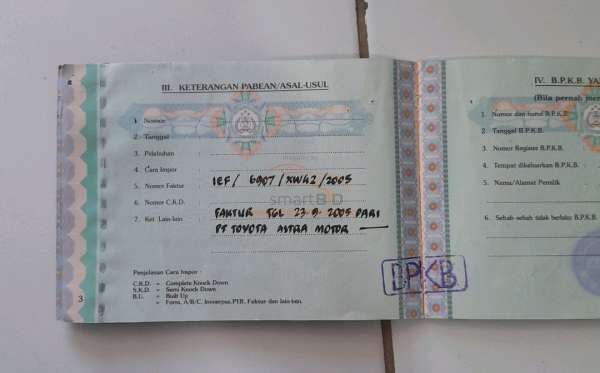 III. KETERANGAN PABEAN/ASAL-USUL
1. Nomor :
2. Tanggal :
3. Pelabuhan :
4. Cara Impor :
5. Nomor Faktur : IEF/ 6907/XW42/2005
6. Nomor C.K.D. :
7. Ket. Lain-lain : FAKTUR TGL 23-9-2005 DARI
PT TOYOTA ASTRA MOTOR
smartBID
Penjelasan Cara Impor :
C.K.D. = Complete Knock Down
S.K.D. = Semi Knock Down
B.U. = Built Up
= Form. A/B/C, Invoerpas.PIB, Faktur dan lain-lain.
3
BPKB
IV. B.P.K.B. YA
(Bila pernah mer
1. Nomor dan huruf B.P.K.B.
2. Tanggal B.P.K.B.
3. Nomor Register B.P.K.B.
4. Tempat dikeluarkan B.P.K.B. :
5. Nama/Alamat Pemilik
6. Sebab-sebab tidak berlaku B.P.K.B.